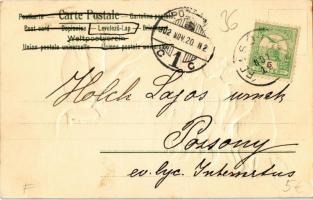 Postkarte Carte Postale Cartolina postale
Post card Dopisnice Levelező-Lap
Weltpostverein
Union postale universelle Unione postale universale
36
902 NOV. 20. N 2
1
C C
Holch Lajos urnak
Pozsony
ev. lyc. Internatus
F
5€